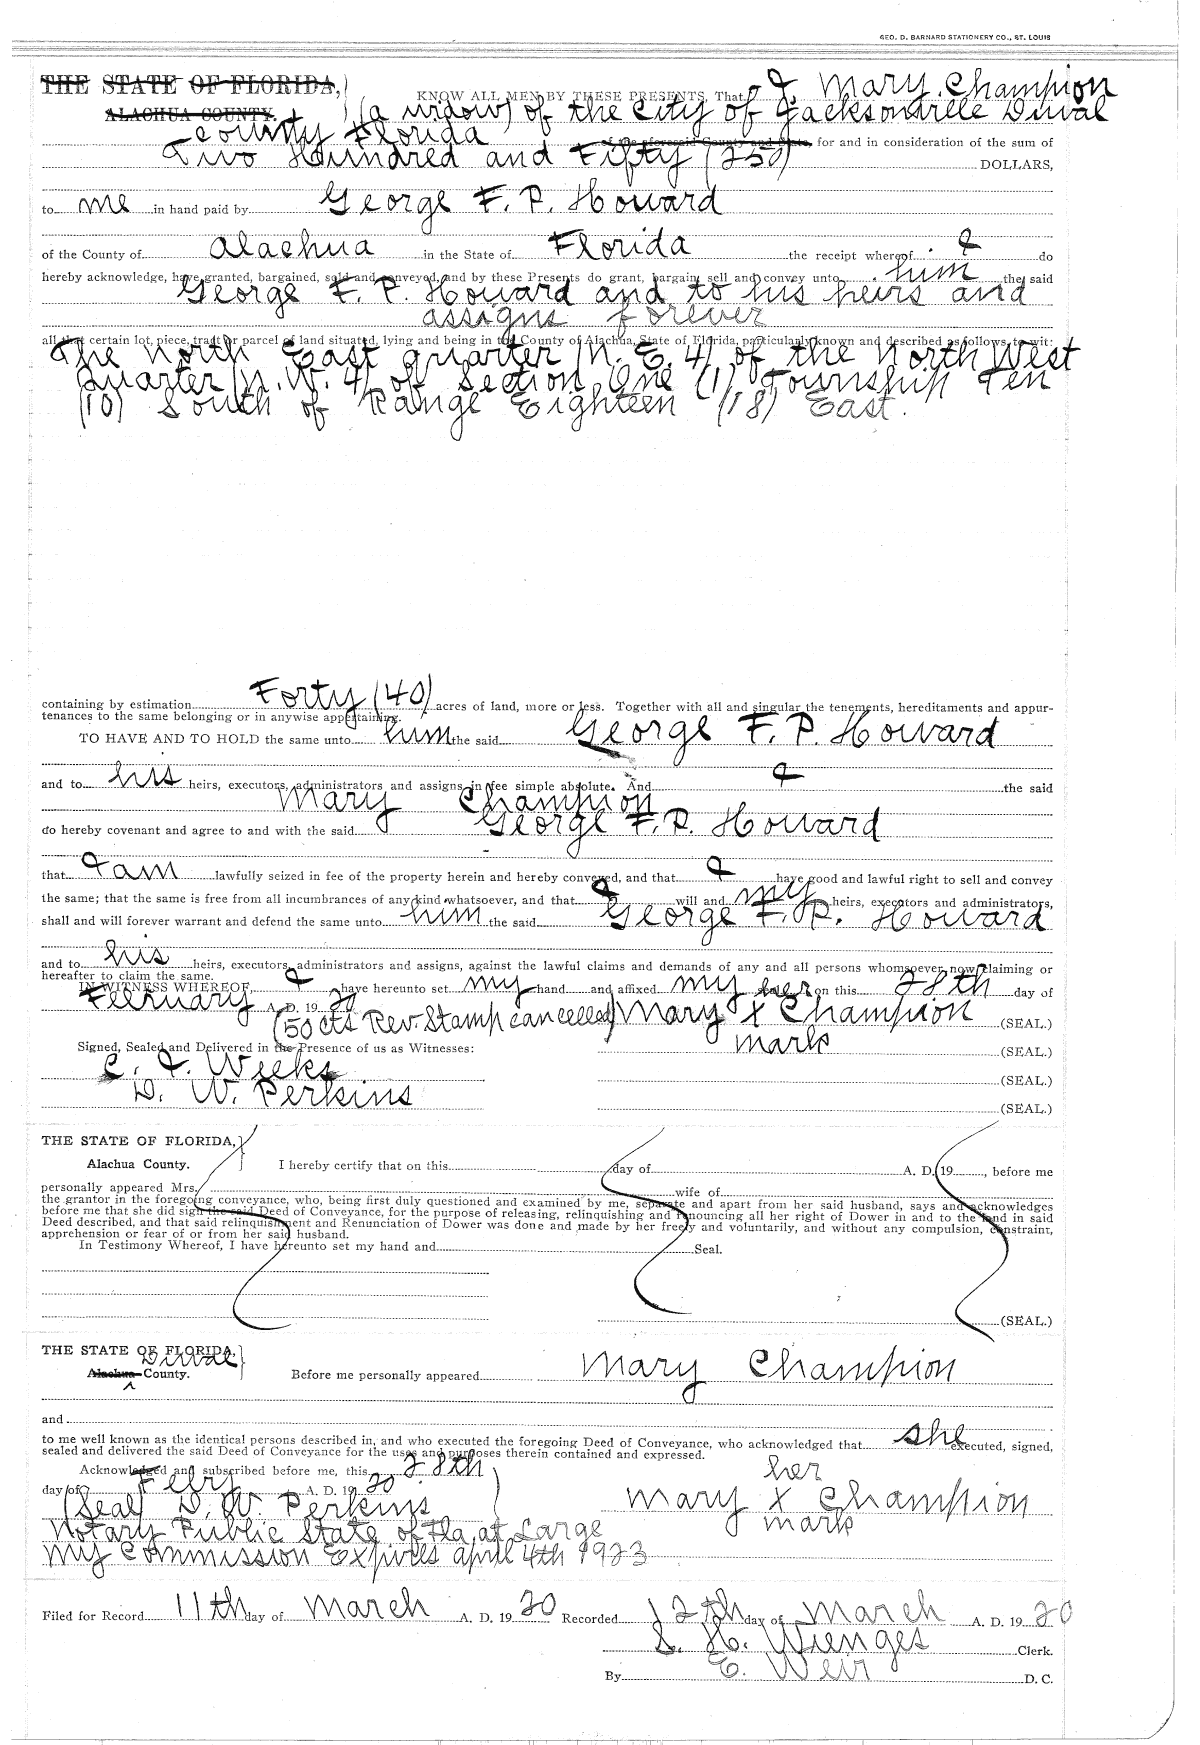 GEO. D. BARNARD STATIONERY CO., ST. LOUIS
THE STATE OF FLORIDA,
ALACHUA COUNTY.
KNOW ALL MEN BY THESE PRESENTS, That I, Mary Champion
(a widow) of the City of Jacksonville Duval
County Florida
of the aforesaid County and State, for and in consideration of the sum of
Two Hundred and Fifty (250) DOLLARS,
to me in hand paid by George F. P. Howard
of the County of Alachua in the State of Florida the receipt whereof I do
hereby acknowledge, have granted, bargained, sold and conveyed, and by these Presents do grant, bargain, sell and convey unto him the said
George F. P. Howard and to his heirs and
assigns forever
all that certain lot, piece, tract or parcel of land situated, lying and being in the County of Alachua, State of Florida, particularly known and described as follows, to wit:
The North East quarter (N. E. 4) of the North West
quarter (N. W. 4) of Section One (1) Township Ten
(10) South of Range Eighteen (18) East.
containing by estimation Forty (40) acres of land, more or less. Together with all and singular the tenements, hereditaments and appur-
tenances to the same belonging or in anywise appertaining.
TO HAVE AND TO HOLD the same unto him the said George F. P. Howard
and to his heirs, executors, administrators and assigns in fee simple absolute. And I the said
Mary Champion
do hereby covenant and agree to and with the said George F. P. Howard
that I am lawfully seized in fee of the property herein and hereby conveyed, and that I have good and lawful right to sell and convey
the same; that the same is free from all incumbrances of any kind whatsoever, and that I will and my heirs, executors and administrators,
shall and will forever warrant and defend the same unto him the said George F. P. Howard
and to his heirs, executors, administrators and assigns, against the lawful claims and demands of any and all persons whomsoever, now claiming or
hereafter to claim the same.
IN WITNESS WHEREOF, I have hereunto set my hand and affixed my her on this 28th day of
February A. D. 19 20
(50 cts Rev. Stamp cancelled) Mary X Champion (SEAL.)
mark
Signed, Sealed and Delivered in the Presence of us as Witnesses: (SEAL.)
C. I. Weeks (SEAL.)
D. W. Perkins (SEAL.)
THE STATE OF FLORIDA,
Alachua County. I hereby certify that on this day of A. D. 19 , before me
personally appeared Mrs. wife of
the grantor in the foregoing conveyance, who, being first duly questioned and examined by me, separate and apart from her said husband, says and acknowledges
before me that she did sign the said Deed of Conveyance, for the purpose of releasing, relinquishing and renouncing all her right of Dower in and to the land in said
Deed described, and that said relinquishment and Renunciation of Dower was done and made by her freely and voluntarily, and without any compulsion, constraint,
apprehension or fear of or from her said husband.
In Testimony Whereof, I have hereunto set my hand and Seal.
(SEAL.)
THE STATE OF FLORIDA,
Duval
Alachua County. Before me personally appeared Mary Champion
and
to me well known as the identical persons described in, and who executed the foregoing Deed of Conveyance, who acknowledged that she executed, signed,
sealed and delivered the said Deed of Conveyance for the uses and purposes therein contained and expressed.
Acknowledged and subscribed before me, this 28th
her
day of Feby A. D. 19 20
(Seal) D. W. Perkins Mary X Champion
mark
Notary Public State of Fla, at Large
My Commission Expires April 4th 1923
Filed for Record 11th day of March A. D. 19 20 Recorded 12th day of March A. D. 19 20
S. H. Wienges Clerk.
By E. Weir D. C.